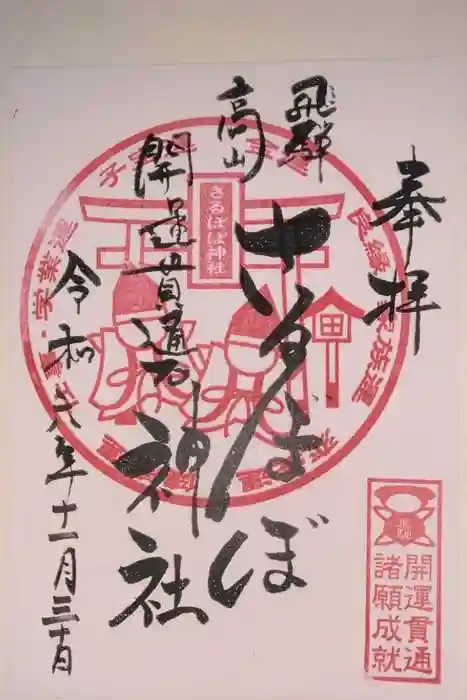 奉拝
飛騨
高山
さるぼぼ
神社
開運貫通石
令和六年十一月三十日
さるぼぼ神社
良縁
家族運
子宝
開運貫通
諸願成就
飛騨